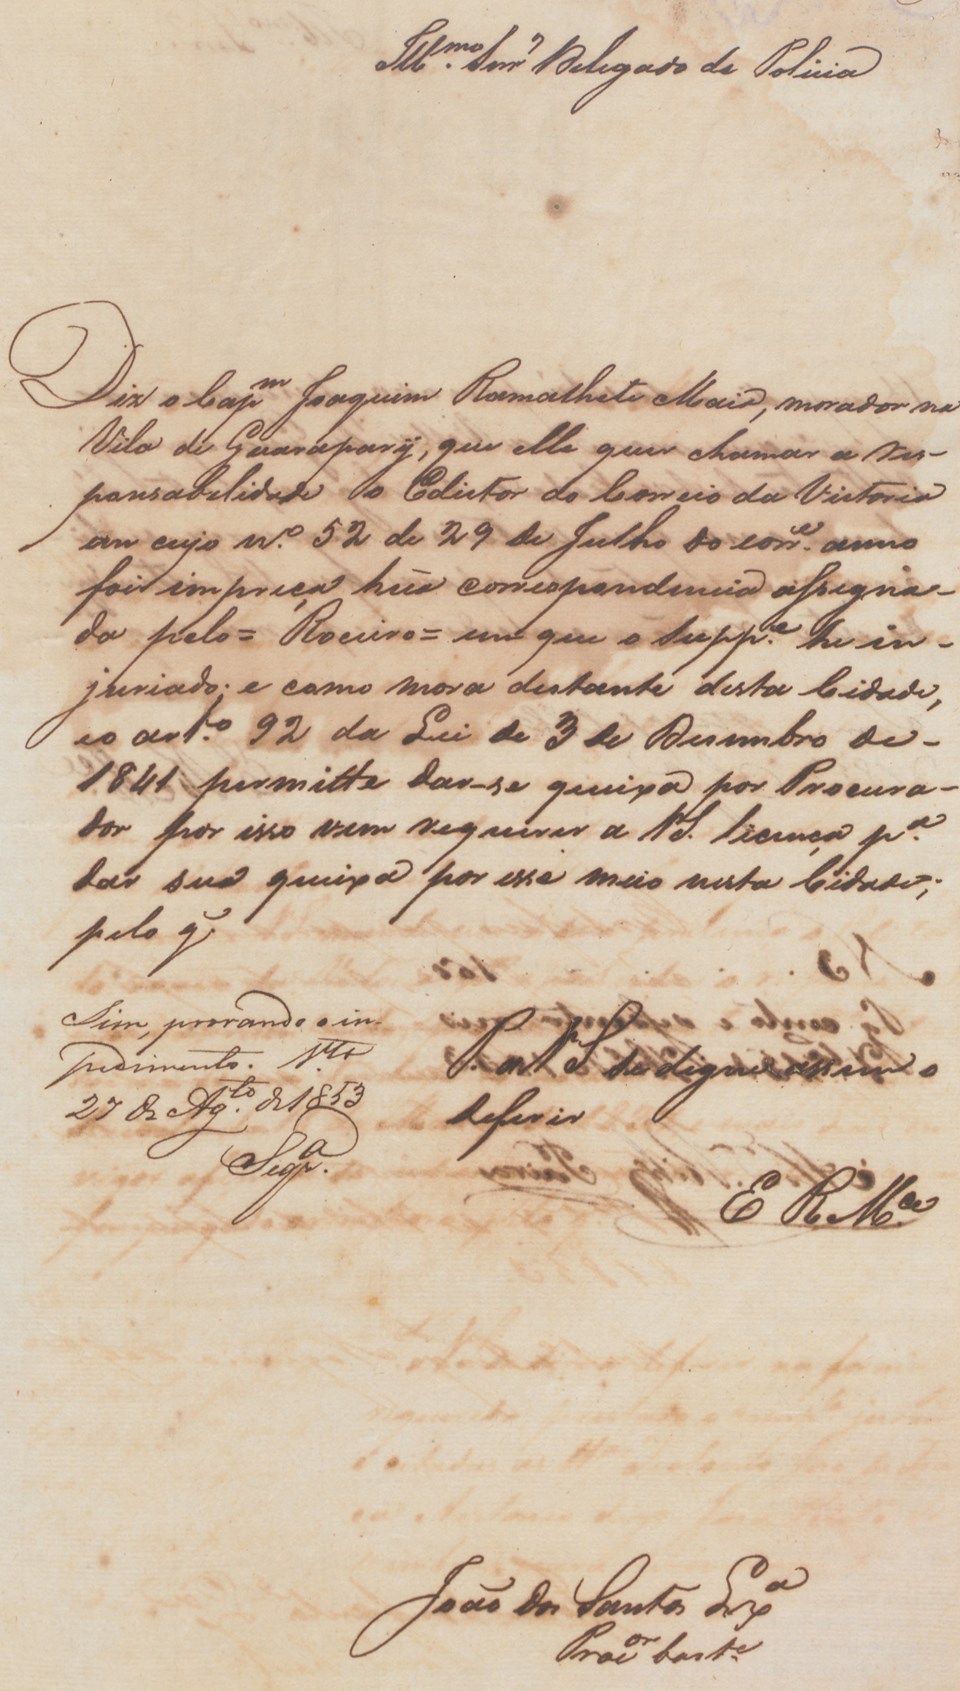 Ill.mo Senr Delegado de Policia
Diz o Capm Joaquim Ramalhete Maia, morador na
Villa de Guarapary, que elle quer chamar a res-
ponsabelidade o Edictor do Correio da Victoria
em cujo n.o 52 de 29 de Julho do corr.e anno
foi impreça hũa correspondencia assegna-
da pelo = Roceiro = em que o Supp.e he in-
juriado; e como mora destante desta Cidade,
e o art.o 92 da Lei de 3 de Desembro de-
1841 permitte dar-se queixa por Procura-
dor por isso vem requerer a V.S. licença p.a
dar sua queixa por esse meio nesta Cidade;
pelo q̃
Sim, provando o im-
pedimento. V.ta
27 de Ag.to de 1853
Seqr.a
P. a V.S. se digne assim o
deferir
E R M.ce
João dos Santos
Proc.or bast.e